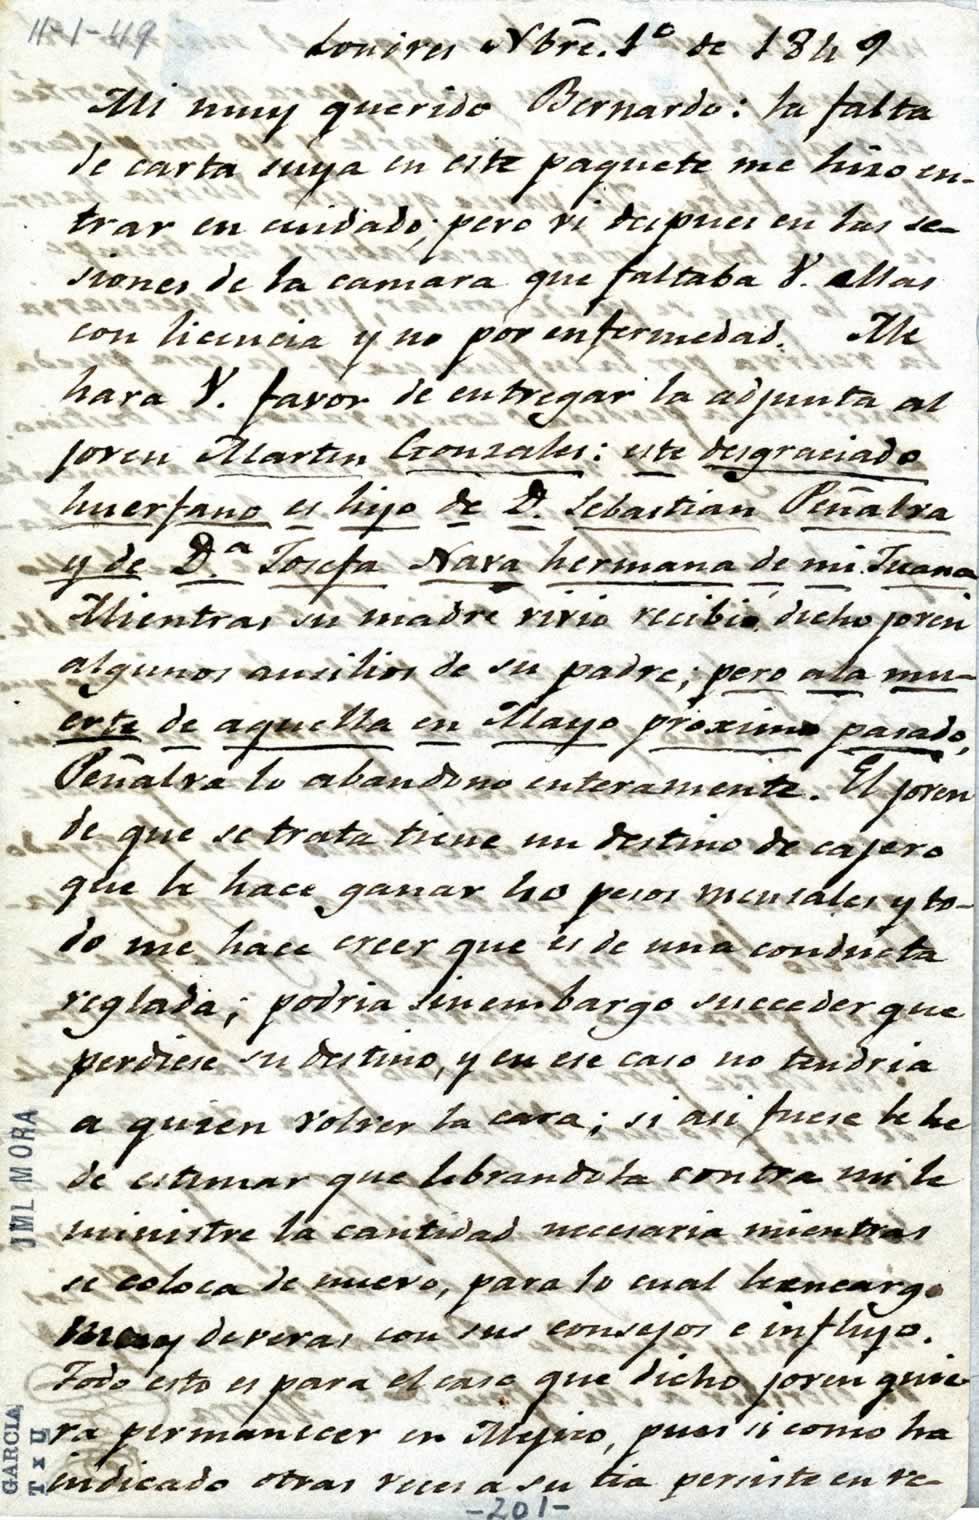 11-1-49
Londres Nbre. 1º de 1849
Mi muy querido Bernardo: la falta
de carta suya en este paquete me hizo en-
trar en cuidado; pero vi despues en las se-
siones de la camara que faltaba V. a ellas
con licencia y no por enfermedad. Me
hara V. favor de entregar la adjunta al
joven Martin Gonzales: este desgraciado
huerfano es hijo de D. Sebastian Peñalva
y de D.ª Josefa Nava hermana de mi Juana
Mientras su madre vivio recibio dicho joven
algunos ausilios de su padre; pero a la mu-
erte de aquella en Mayo proximo pasado,
Peñalva lo abandono enteramente. El joven
de que se trata tiene un destino de cajero
que le hace ganar 40 pesos mensales y to-
do me hace creer que es de una conducta
reglada; podria sin embargo succeder que
perdiese su destino, y en ese caso no tendria
a quien volver la cara; si asi fuese le he
de estimar que librandola contra mi le
ministre la cantidad necesaria mientras
se coloca de nuevo, para lo cual le encargo
muy deveras con sus consejos e influjo.
Todo esto es para el caso que dicho joven quie-
ra permanecer en Mejico, pues si como ha
indicado otras veces a su tia persiste en ve-
-201-
JML MORA
GARCIA
TxU